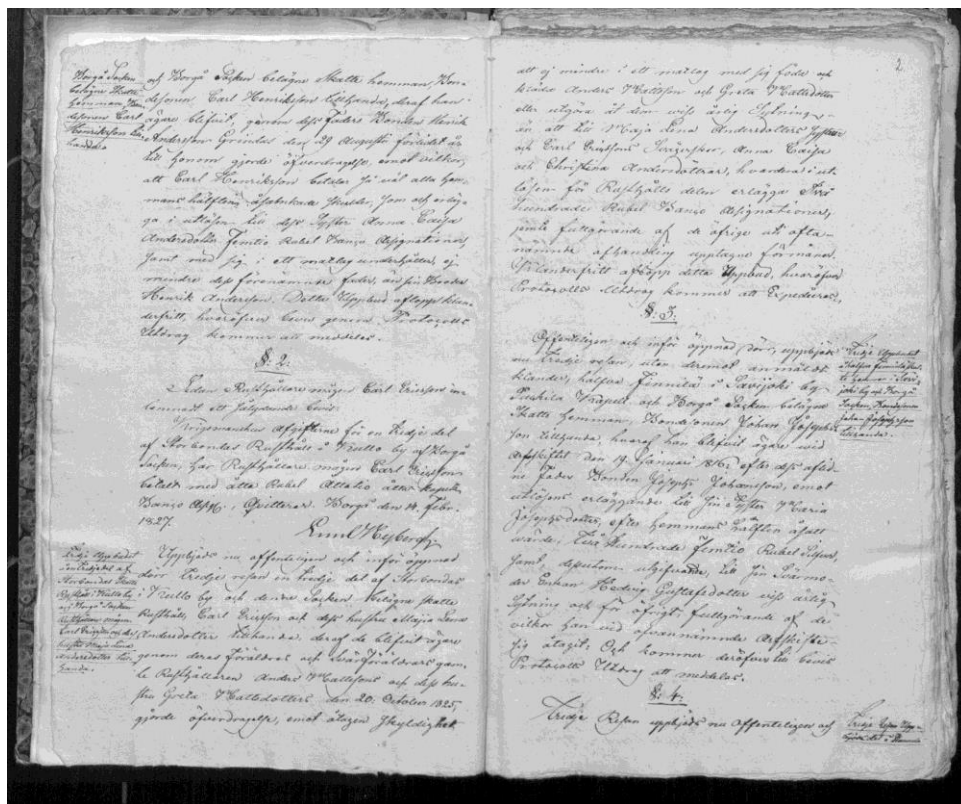 Borgå Socken
belägne Skatte
hemman, Bon-
desonen Carl
Henriksson till-
handa
och Borgå Socken belägne Skatte hemman, Bon-
desonen Carl Henriksson tillhanda, deraf han
ägare blifvit, genom dess Faders Bonden Henrik
Andersson Grindas den 29 Augusti förledet år
till honom gjorde öfverdragelse, emot vilkor,
att Carl Henriksson betalar så väl alla hem-
mans hälftens skulder, som och erläg-
ga i utlösen till dess Syster Anna Caisa
Andersdotter Femtio Rubel Banco Assignationer,
samt med sig i ett matlag underhåller ej
mindre dess förenämnde fader, än sin Broder
Henrik Andersson. Detta Uppbud aflopp klan-
derfritt, hvaröfver bevis genom Protocolls
Utdrag kommer att meddelas.
§: 2.
Sedan Rusthållare mågen Carl Ericsson in-
lemnadt ett så lydande bevis:
Krigsmanshus Afgifterne för en tredje del
af Storbondas Rusthåll i Krullo by af Borgå
Socken, har Rusthållare mågen Carl Ericsson
betalt med åtta Rubel Attatio åtta kopek
Banco Ass., qvitterar. Borgå den 14 Febr.
1827.
Tredje Uppbudet
å en tredjedel af
Storbondas Skatte
Rusthåll i Krullo by
och Borgå Socken
Rusthållare mågen
Carl Ericsson och dess
hustru Maja Lena
Andersdotter till-
handa.
Uppbjöds nu offenteligen och inför öppnad
dörr tredje resan en tredje del af Storbondas
i Krullo by och denne Socken belägne skatte
Rusthåll, Carl Ericsson och dess hustru Maja Lena
Andersdotter tillhanda, deraf de blifvit ägare
genom deras Föräldrars och Svärföräldrars gam-
le Rusthållaren Anders Mattssons och dess hu-
stru Greta Mattsdotters den 20 October 1825
gjorde öfverdragelse, emot åtagen skyldighet
2
att ej mindre i ett matlag med sig föda och
kläda Anders Mattsson och Greta Mattsdotter
eller utgöra åt dem viss årlig Sytning,
än att till Maja Lena Andersdotters Syster
och Carl Ericssons Svägerskor, Anna Caisa
och Christina Andersdöttrar, hvardera i ut-
lösen för Rusthålls delen erlägga Tre
hundrade Rubel Banco Assignationer,
jemte fullgörande af de öfrige uti ofta-
nämnde afhandling upptagne förmåner.
Klanderfritt aflopp detta Uppbud, hvaröfver
Protocolls Utdrag kommer att Expedieras.
§: 3:
Offenteligen och inför öppnad dörr, uppbjöds
nu tredje resan, utan deremot anmäldt
klander, halfva Finnilä i Savijoki by
Puckila Kapell och Borgå Socken belägne
Skatte hemman, Bondesonen Johan Josephs-
son tillhanda, hvaraf han blefvit ägare vid
Arfskiftet den 19 Januari 1816, efter dess aflid-
ne fader Bonden Joseph Johansson, emot
utlösens erläggande till sin Syster Maria
Josephsdotter, efter hemmans hälften åsatt
värde, Hundrade Femtio Rubel Silfver,
samt, utgifvande till sin Svärmo-
der Enkan Hedvig Gustafsdotter viss årlig
Sytning och för öfrigt fullgörande af de
vilkor han vid ofvannämnde Arfskifte
sig åtagit. Och kommer deröfver till bevis
Protocolls Utdrag att meddelas.
Tredje Uppbudet
å halfva Finnilä Skat-
te hemman i Savi-
joki by och Borgå
Socken, Bondesonen
Johan Josephsson
tillhanda.
§: 4.
Tredje Resan uppbjöds nu Offenteligen och
Tredje Resan Upp-